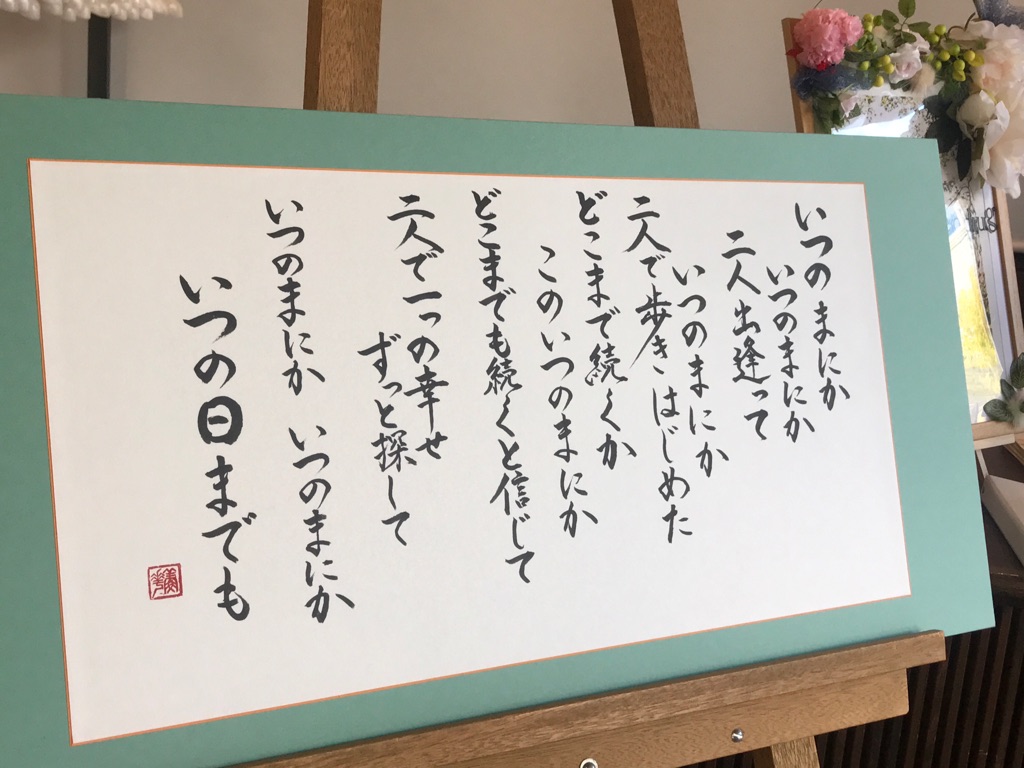 いつのまにか
いつのまにか
二人出逢って
いつのまにか
二人で歩きはじめた
どこまで続くか
このいつのまにか
どこまでも続くと信じて
二人で一つの幸せ
ずっと探して
いつのまにか いつのまにか
いつの日までも